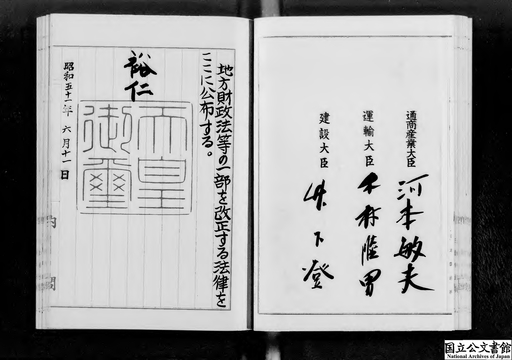 通商産業大臣 河本敏夫
運輸大臣 木村睦男
建設大臣 竹下登
地方財政法等の一部を改正する法律を
ここに公布する。
裕仁
天皇御璽
昭和五十一年六月十一日
内閣
国立公文書館
National Archives of Japan